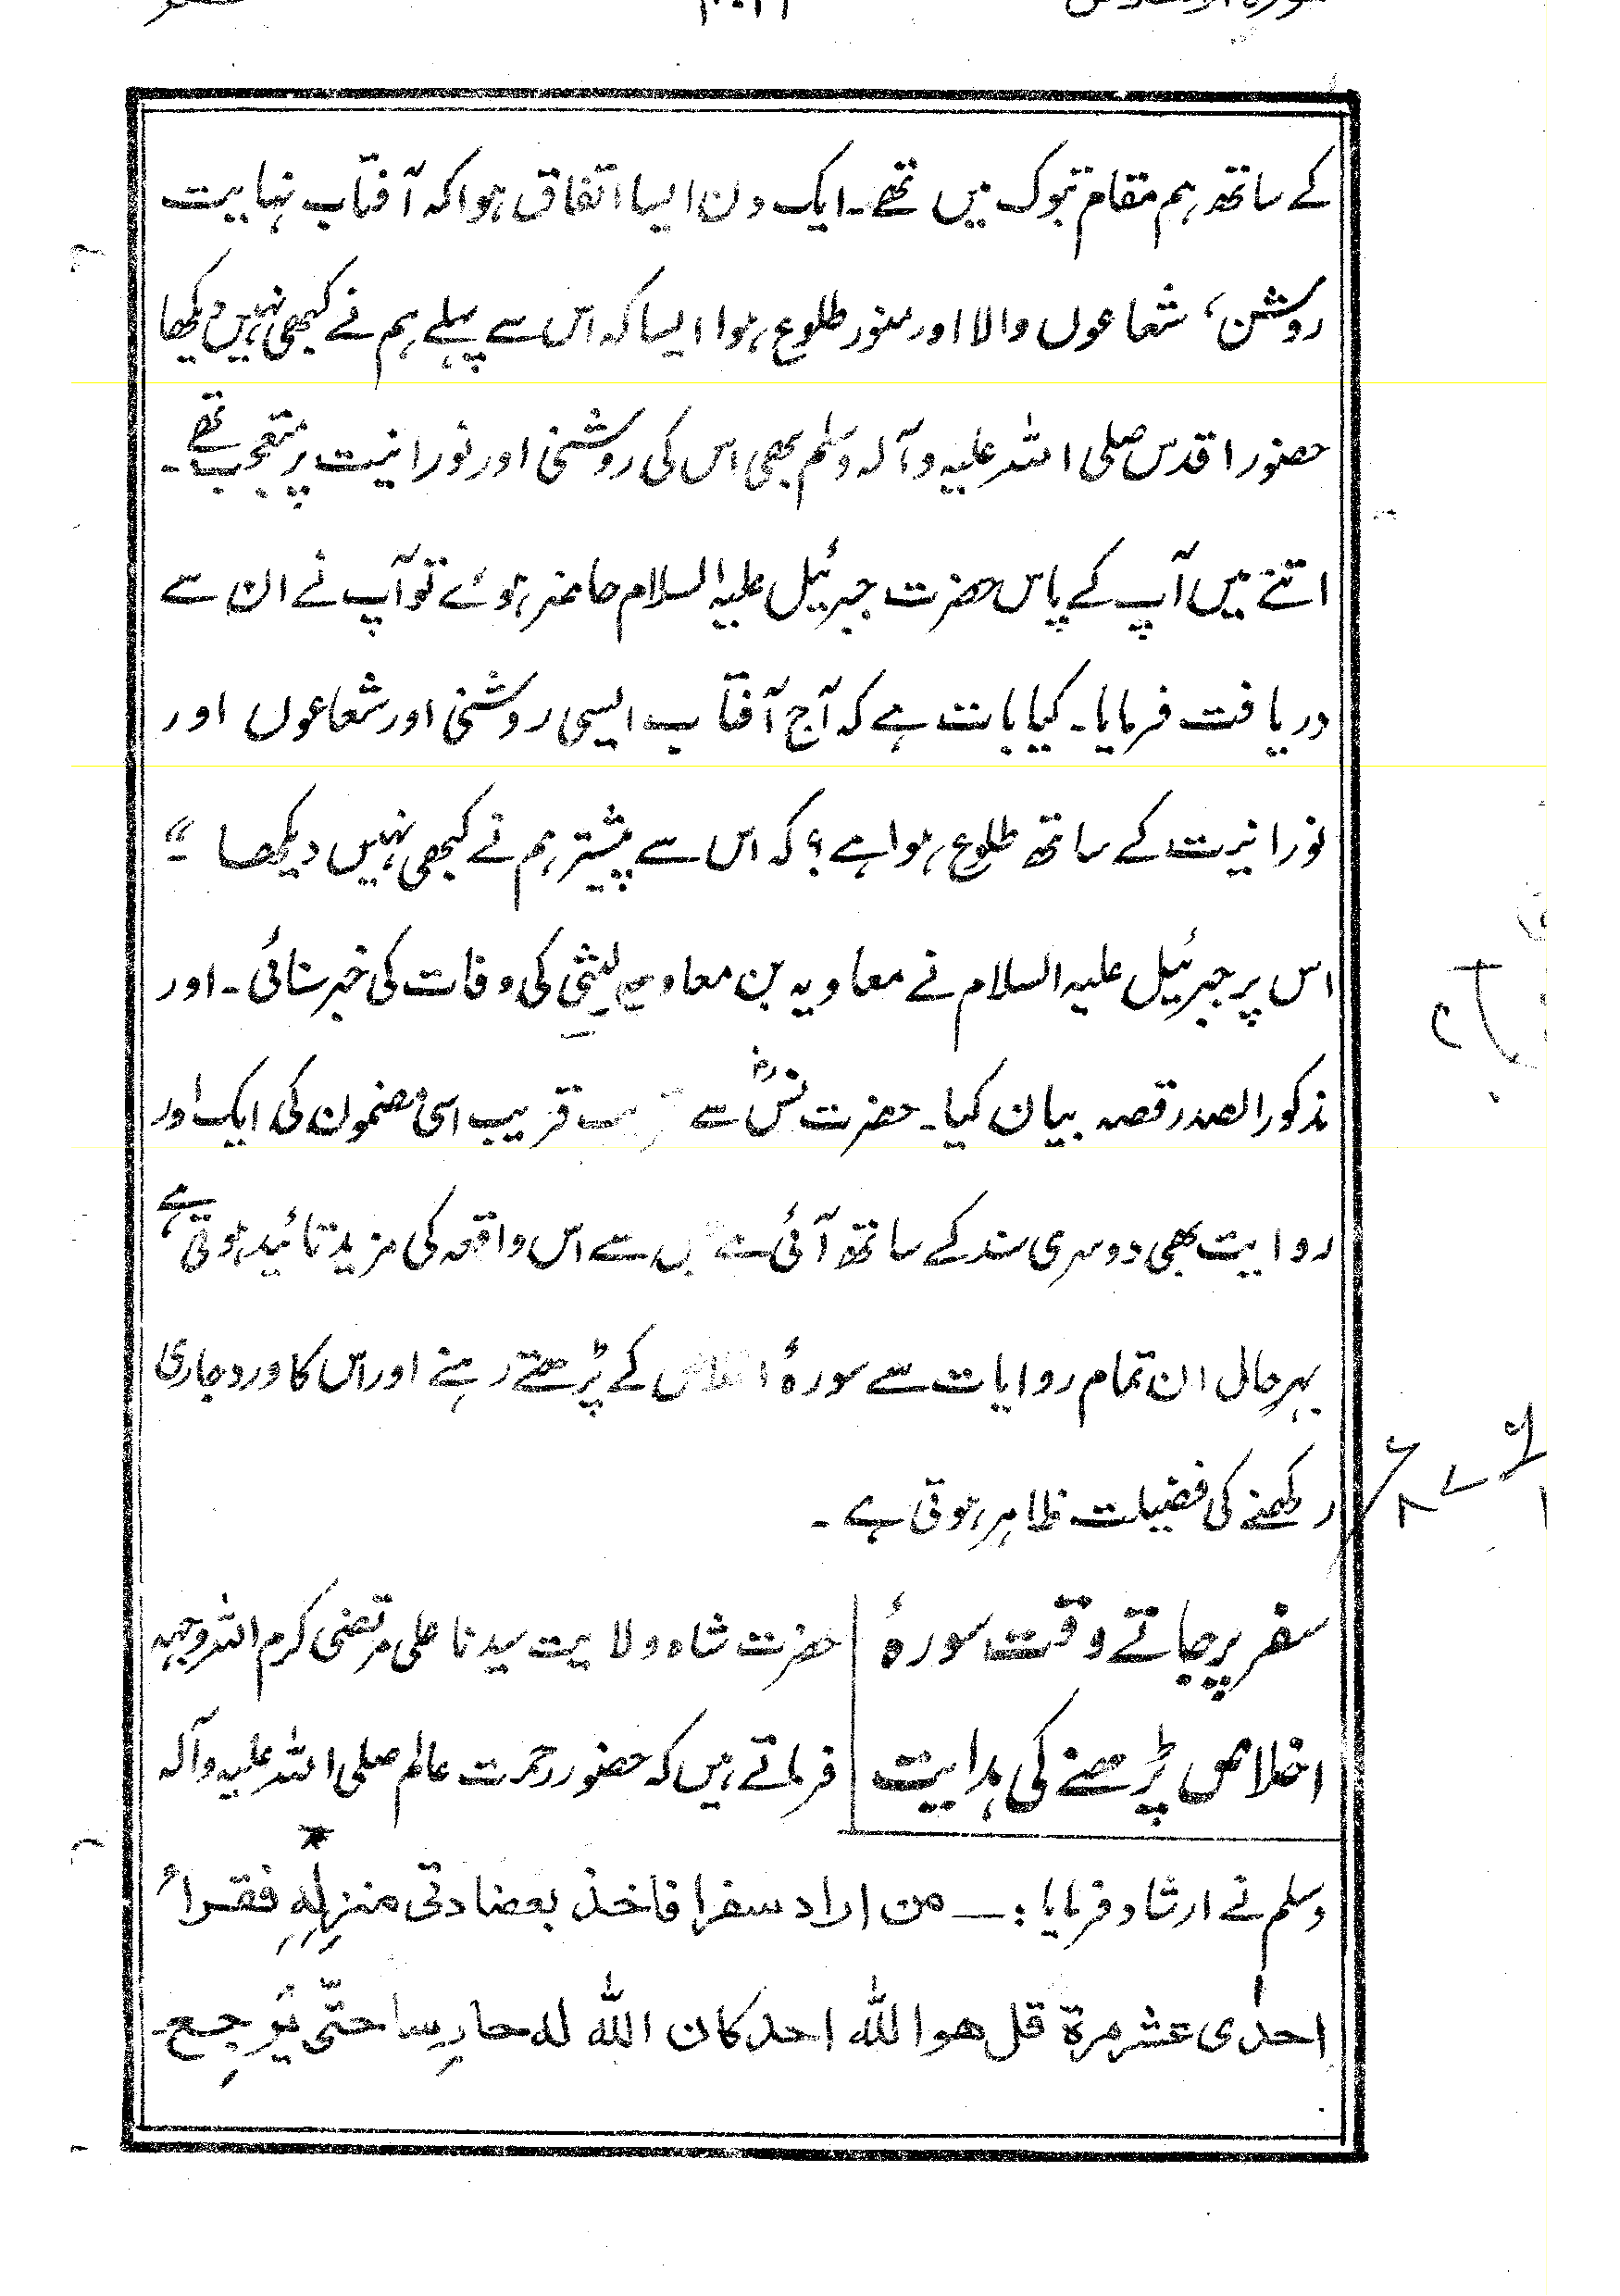 کے ساتھ ہم مقام تبوک میں تھے۔ ایک دن ایسا اتفاق ہوا کہ آفتاب نہایت
روشن، شعاعوں والا اور منور طلوع ہوا ایسا کہ اس سے پہلے ہم نے کبھی نہیں دیکھا
حضور اقدس صلی اللہ علیہ وآلہ وسلم بھی اس کی روشنی اور نورانیت پر متعجب تھے۔
اتنے میں آپ کے پاس حضرت جبرئیل علیہ السلام حاضر ہوئے تو آپ نے ان سے
دریافت فرمایا۔ کیا بات ہے کہ آج آفتاب ایسی روشنی اور شعاعوں اور
نورانیت کے ساتھ طلوع ہوا ہے؟ کہ اس سے پیشتر ہم نے کبھی نہیں دیکھا۔"
اس پر جبرئیل علیہ السلام نے معاویہ بن معاویہ لیثی کی وفات کی خبر سنائی۔ اور
مذکور الصدر قصہ بیان کیا۔ حضرت نسؓ سے قریب اسی مضمون کی ایک اور
روایت بھی دوسری سند کے ساتھ آئی ہے سے اس واقعہ کی مزید تائید ہوتی ہے،
بہرحال ان تمام روایات سے سورۂ اخلاص کے پڑھتے رہنے اور اس کا ورد جاری
رکھنے کی فضیلت ظاہر ہوتی ہے۔
سفر پر جاتے وقت سورۂ
اخلاص پڑھنے کی ہدایت
حضرت شاہ ولایت سیدنا علی مرتضیٰ کرم اللہ وجہہ
فرماتے ہیں کہ حضور رحمت عالم صلی اللہ علیہ وآلہ
وسلم نے ارشاد فرمایا :— من اراد سفرا فاخذ بعضادتی منزِلِهِ فقرأ
احدٰی عشر مرة قل هو الله احد کان الله له حارِسا حتّی یَرجِع